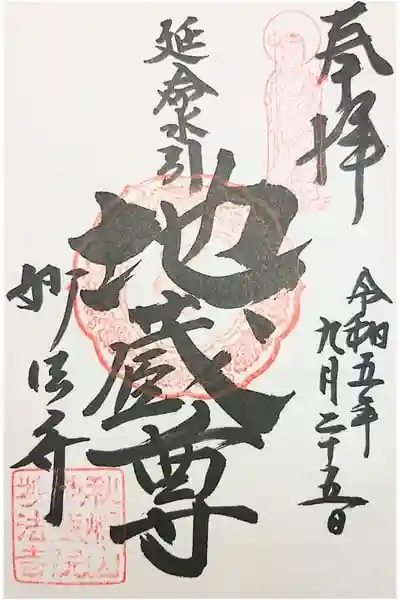 奉拝
令和五年
九月二十五日
延命水引
地蔵尊
妙法寺
妙法寺